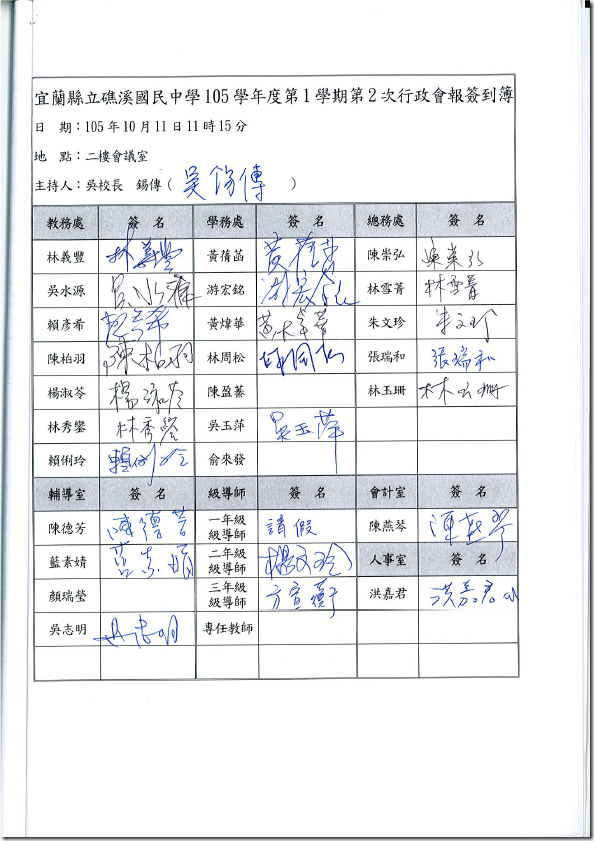 宜蘭縣立礁溪國民中學105學年度第1學期第2次行政會報簽到簿
日　期：105年10月11日11時15分
地　點：二樓會議室
主持人：吳校長　錫傳（吳錫傳）
教務處　簽　名　學務處　簽　名　總務處　簽　名
林義豐　林義豐　黃蓓菡　黃蓓菡　陳崇弘　陳崇弘
吳水源　吳水源　游宏銘　游宏銘　林雪菁　林雪菁
賴彥希　賴彥希　黃煒華　黃煒華　朱文珍　朱文珍
陳柏羽　陳柏羽　林周松　林周松　張瑞和　張瑞和
楊淑苓　楊淑苓　陳盈蓁　林玉珊　林玉珊
林秀鑾　林秀鑾　吳玉萍　吳玉萍
賴俐玲　賴俐玲　俞來發
輔導室　簽　名　級導師　簽　名　會計室　簽　名
陳德芳　陳德芳　一年級級導師　請假　陳燕琴　陳燕琴
藍素娟　藍素娟　二年級級導師　楊文玲　人事室　簽　名
顏瑞瑩　三年級級導師　方宣蘅　洪嘉君　洪嘉君
吳志明　吳志明　專任教師